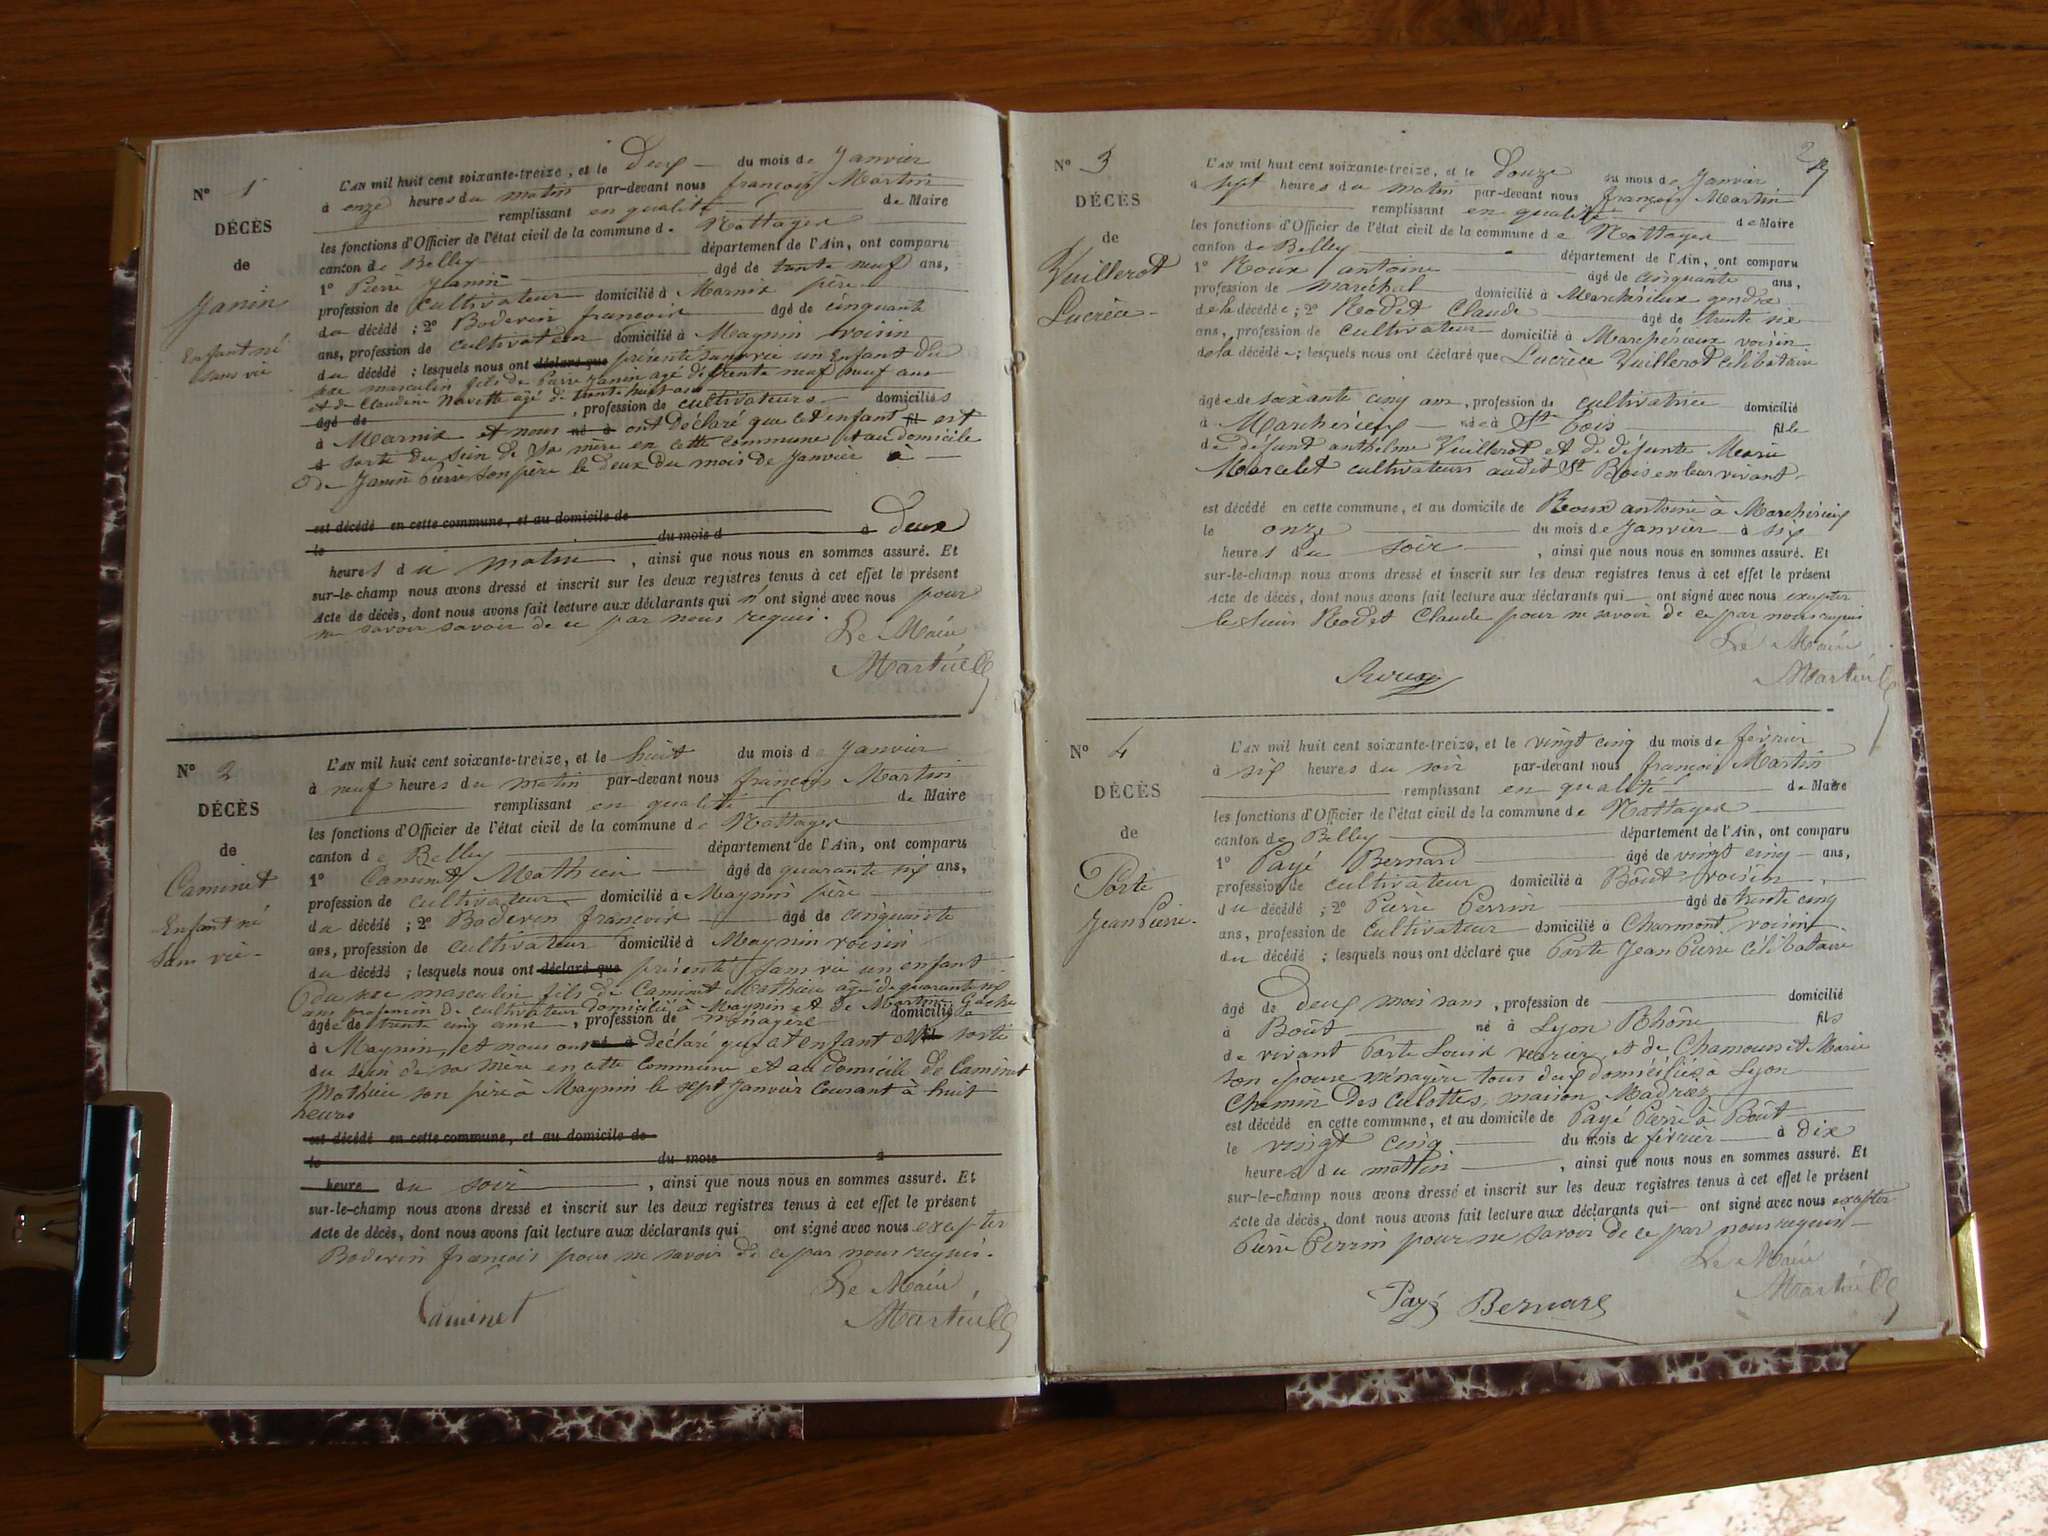 N° 1
DÉCÈS
de
Janin
Enfant né
sans vie
L'AN mil huit cent soixante-treize, et le Deux du mois de Janvier
à onze heures du matin par-devant nous françois Martin
remplissant en qualité de Maire
les fonctions d'Officier de l'état civil de la commune de Nattages
canton de Belley département de l'Ain, ont comparu
1° Pierre Janin âgé de trente neuf ans,
profession de cultivateur domicilié à Marnix père
du décédé ; 2° Boderin françois âgé de cinquante
ans, profession de cultivateur domicilié à Maynin voisin
du décédé ; lesquels nous ont déclaré que présenté sans vie un Enfant du
sexe masculin fils de Pierre Janin agé de trente neuf neuf ans
et de Claudine Navette agé de trente huit ans
âgé de , profession de cultivateurs domiciliés
à Marnix et nous né à ont déclaré que cet enfant fil est
sorti du sein de sa mère en cette commune et au domicile
de Janin Pierre son père le deux du mois de Janvier à
est décédé en cette commune, et au domicile de
le du mois d à deux
heures du matin , ainsi que nous nous en sommes assuré. Et
sur-le-champ nous avons dressé et inscrit sur les deux registres tenus à cet effet le présent
Acte de décès, dont nous avons fait lecture aux déclarants qui n'ont signé avec nous pour
ne savoir savoir de ce par nous requis.
Le Maire
Martin
N° 2
DÉCÈS
de
Caminet
Enfant né
sans vie
L'AN mil huit cent soixante-treize, et le huit du mois de Janvier
à neuf heures du matin par-devant nous françois Martin
remplissant en qualité de Maire
les fonctions d'Officier de l'état civil de la commune de Nattages
canton de Belley département de l'Ain, ont comparu
1° Caminet Mathieu âgé de quarante six ans,
profession de cultivateur domicilié à Maynin père
du décédé ; 2° Boderin françois âgé de cinquante
ans, profession de cultivateur domicilié à Maynin voisin
du décédé ; lesquels nous ont déclaré que présenté sans vie un enfant
du sexe masculin fils de Caminet Mathieu agé de quarante six
ans profession de cultivateur domicilié à Maynin et de
âgée de trente cinq ans , profession de ménagère domiciliée
à Maynin, et nous ont né à déclaré que cet enfant est fil sorti
du sein de sa mère en cette commune et au domicile de Caminet
Mathieu son père à Maynin le sept Janvier courant à huit
heures
est décédé en cette commune, et au domicile de
le du mois à
heure du soir , ainsi que nous nous en sommes assuré. Et
sur-le-champ nous avons dressé et inscrit sur les deux registres tenus à cet effet le présent
Acte de décès, dont nous avons fait lecture aux déclarants qui ont signé avec nous excepter
Boderin françois pour ne savoir de ce par nous requis.
Le Maire
Caminet
Martin
N° 3
DÉCÈS
de
Vuillerot
Lucrèce
2
L'AN mil huit cent soixante-treize, et le Douze du mois de Janvier
à sept heures du matin par-devant nous françois Martin
remplissant en qualité de Maire
les fonctions d'Officier de l'état civil de la commune de Nattages
canton de Belley département de l'Ain, ont comparu
1° Roux antoine âgé de cinquante ans,
profession de maréchal domicilié à Marchérieux gendre
de la décédée ; 2° Rodet Claude âgé de trente six
ans, profession de cultivateur domicilié à voisin
de la décédée ; lesquels nous ont déclaré que Lucrèce Vuillerot célibataire
âgée de soixante cinq ans, profession de cultivatrice domicilié
à née à St bois fille
de défunt anthelme Vuillerot et de défunte Marie
Marcelet cultivateurs audit St Bois en leur vivant
est décédé en cette commune, et au domicile de Roux antoine à
le onze du mois de Janvier à six
heures du soir , ainsi que nous nous en sommes assuré. Et
sur-le-champ nous avons dressé et inscrit sur les deux registres tenus à cet effet le présent
Acte de décès, dont nous avons fait lecture aux déclarants qui ont signé avec nous excepter
le sieur Rodet Claude pour ne savoir de ce par nous requis
Le Maire
Roux
Martin
N° 4
DÉCÈS
de
Porte
Jean Pierre
L'AN mil huit cent soixante-treize, et le vingt cinq du mois de février
à six heures du soir par-devant nous françois Martin
remplissant en qualité de Maire
les fonctions d'Officier de l'état civil de la commune de Nattages
canton de Belley département de l'Ain, ont comparu
1° Payé Bernard âgé de vingt cinq ans,
profession de cultivateur domicilié à Boût voisin
du décédé ; 2° Pierre Perrin âgé de trente cinq
ans, profession de cultivateur domicilié à Charmont voisin
du décédé ; lesquels nous ont déclaré que Porte Jean Pierre célibataire
âgé de Deux mois sans , profession de domicilié
à Boût né à Lyon Rhône fils
de vivant Porte Louis et de Chamousset Marie
son épouse ménagère tous deux domiciliés à Lyon
Chemin des Culottes, maison
est décédé en cette commune, et au domicile de Payé Pierre à Boût
le vingt cinq du mois de février à dix
heures du mattin , ainsi que nous nous en sommes assuré. Et
sur-le-champ nous avons dressé et inscrit sur les deux registres tenus à cet effet le présent
Acte de décès, dont nous avons fait lecture aux déclarants qui ont signé avec nous excepter
Pierre Perrin pour ne savoir de ce par nous requis
Le Maire
Payé Bernard
Martin